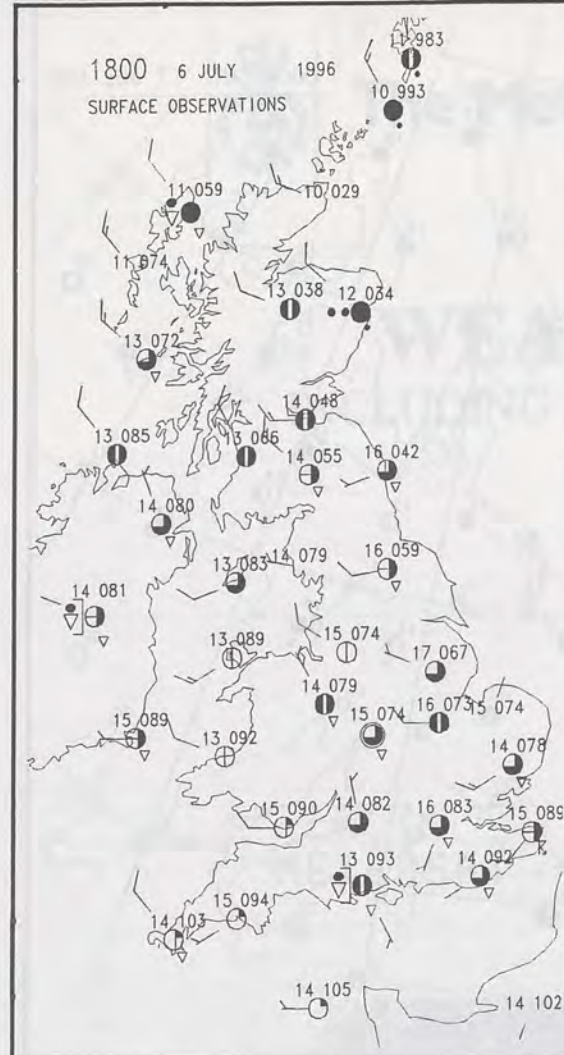 11 983
1800 6 JULY 1996
10 993
SURFACE OBSERVATIONS
11 059
10 029
11 074
13 038
12 034
13 072
14 048
13 085
13 066
14 055
16 042
14 080
13 083
14 079
16 059
14 081
13 089
15 074
17 067
14 079
16 073
15 074
15 089
13 092
15 074
14 078
15 090
14 082
16 083
15 089
13 093
14 092
15 094
14 103
14 105
14 102